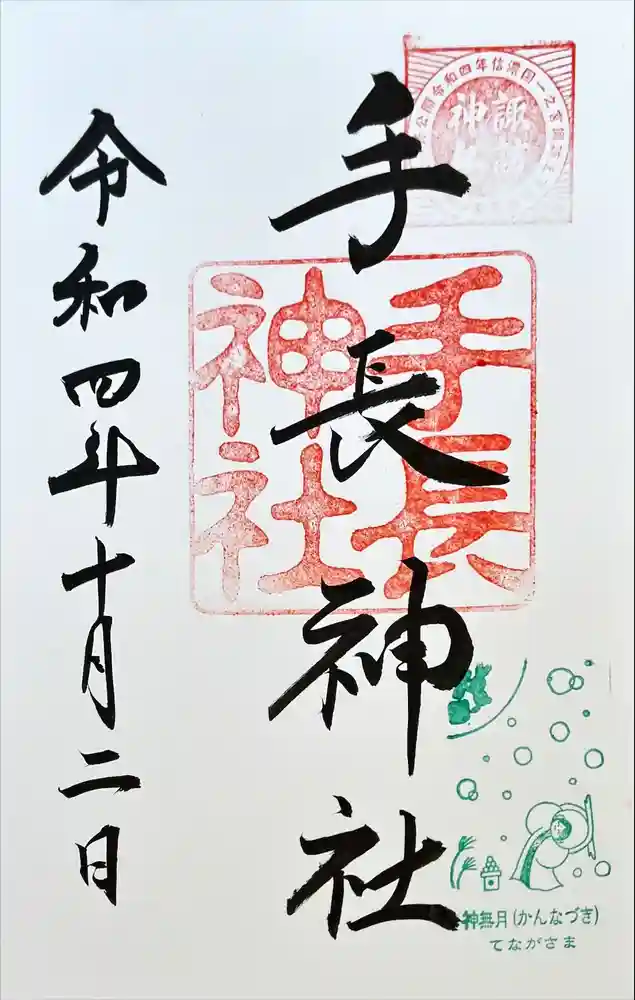 手長神社
令和四年十月二日
手長
神社
令和四年信濃国一之宮
諏訪
神
神無月(かんなづき)
てながさま